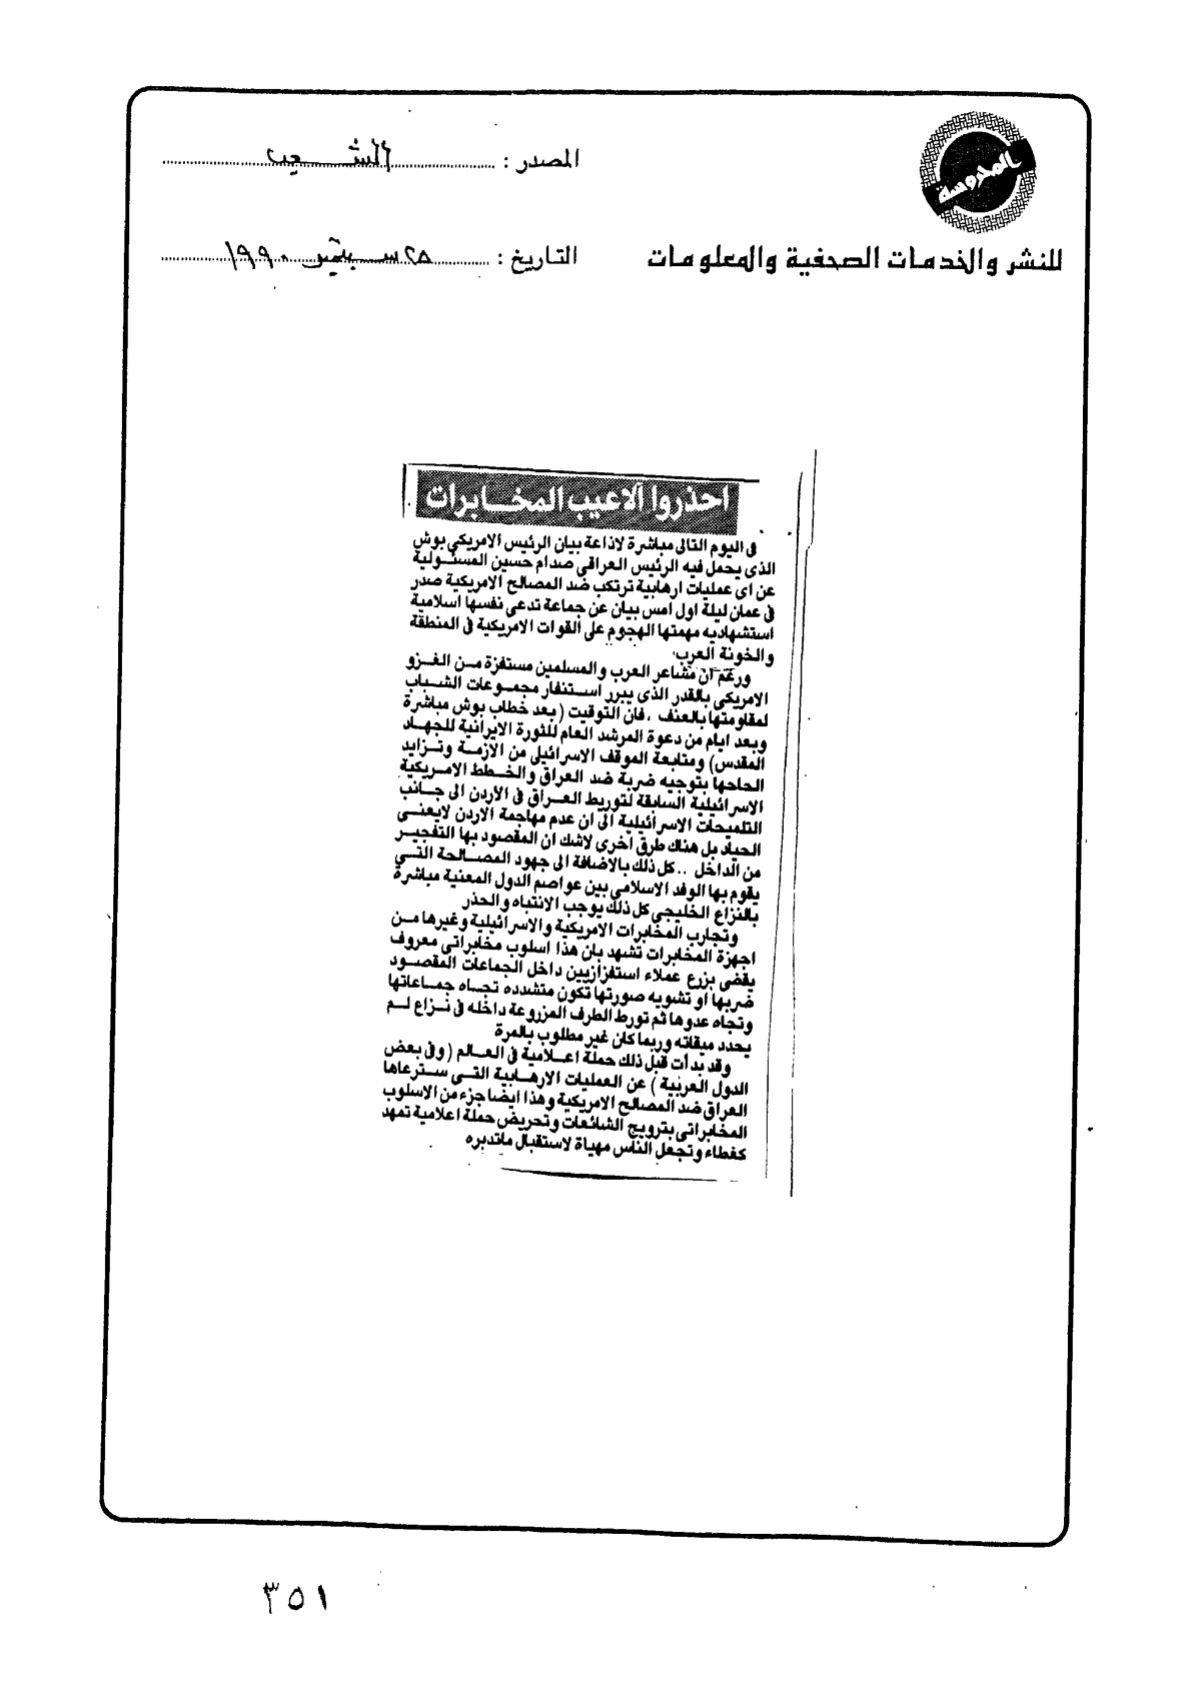 المحروسة
المصدر : الشعب
للنشر والخدمات الصحفية والمعلومات
التاريخ : ٢٥ سبتمبر ١٩٩٠
احذروا ألاعيب المخابرات
فى اليوم التالى مباشرة لاذاعة بيان الرئيس الامريكى بوش
الذى يحمل فيه الرئيس العراقى صدام حسين المسئولية
عن اى عمليات ارهابية ترتكب ضد المصالح الامريكية صدر
فى عمان ليلة اول امس بيان عن جماعة تدعى نفسها اسلامية
استشهاديه مهمتها الهجوم على القوات الامريكية فى المنطقة
والخونة العرب
ورغم ان مشاعر العرب والمسلمين مستفزة من الغزو
الامريكى بالقدر الذى يبرر استنفار مجموعات الشباب
لمقاومتها بالعنف ، فان التوقيت (بعد خطاب بوش مباشرة
وبعد ايام من دعوة المرشد العام للثورة الايرانية للجهاد
المقدس) ومتابعة الموقف الاسرائيلى من الازمة وتزايد
الحاحها بتوجيه ضربة ضد العراق والخطط الامريكية
الاسرائيلية السابقة لتوريط العراق فى الاردن الى جانب
التلميحات الاسرائيلية الى ان عدم مهاجمة الاردن لايعنى
الحياد بل هناك طرق اخرى لاشك ان المقصود بها التفجير
من الداخل .. كل ذلك بالاضافة الى جهود المصالحة التى
يقوم بها الوفد الاسلامى بين عواصم الدول المعنية مباشرة
بالنزاع الخليجى كل ذلك يوجب الانتباه والحذر
وتجارب المخابرات الامريكية والاسرائيلية وغيرها من
اجهزة المخابرات تشهد بان هذا اسلوب مخابراتى معروف
يقضى بزرع عملاء استفزازيين داخل الجماعات المقصود
ضربها او تشويه صورتها تكون متشدده تجاه جماعاتها
وتجاه عدوها ثم تورط الطرف المزروعة داخله فى نزاع لم
يحدد ميقاته وربما كان غير مطلوب بالمرة
وقد بدأت قبل ذلك حملة اعلامية فى العالم (وفى بعض
الدول العربية) عن العمليات الارهابية التى سترعاها
العراق ضد المصالح الامريكية وهذا ايضا جزء من الاسلوب
المخابراتى بترويج الشائعات وتحريض حملة اعلامية تمهد
كغطاء وتجعل الناس مهياة لاستقبال ماتدبره
٣٥١